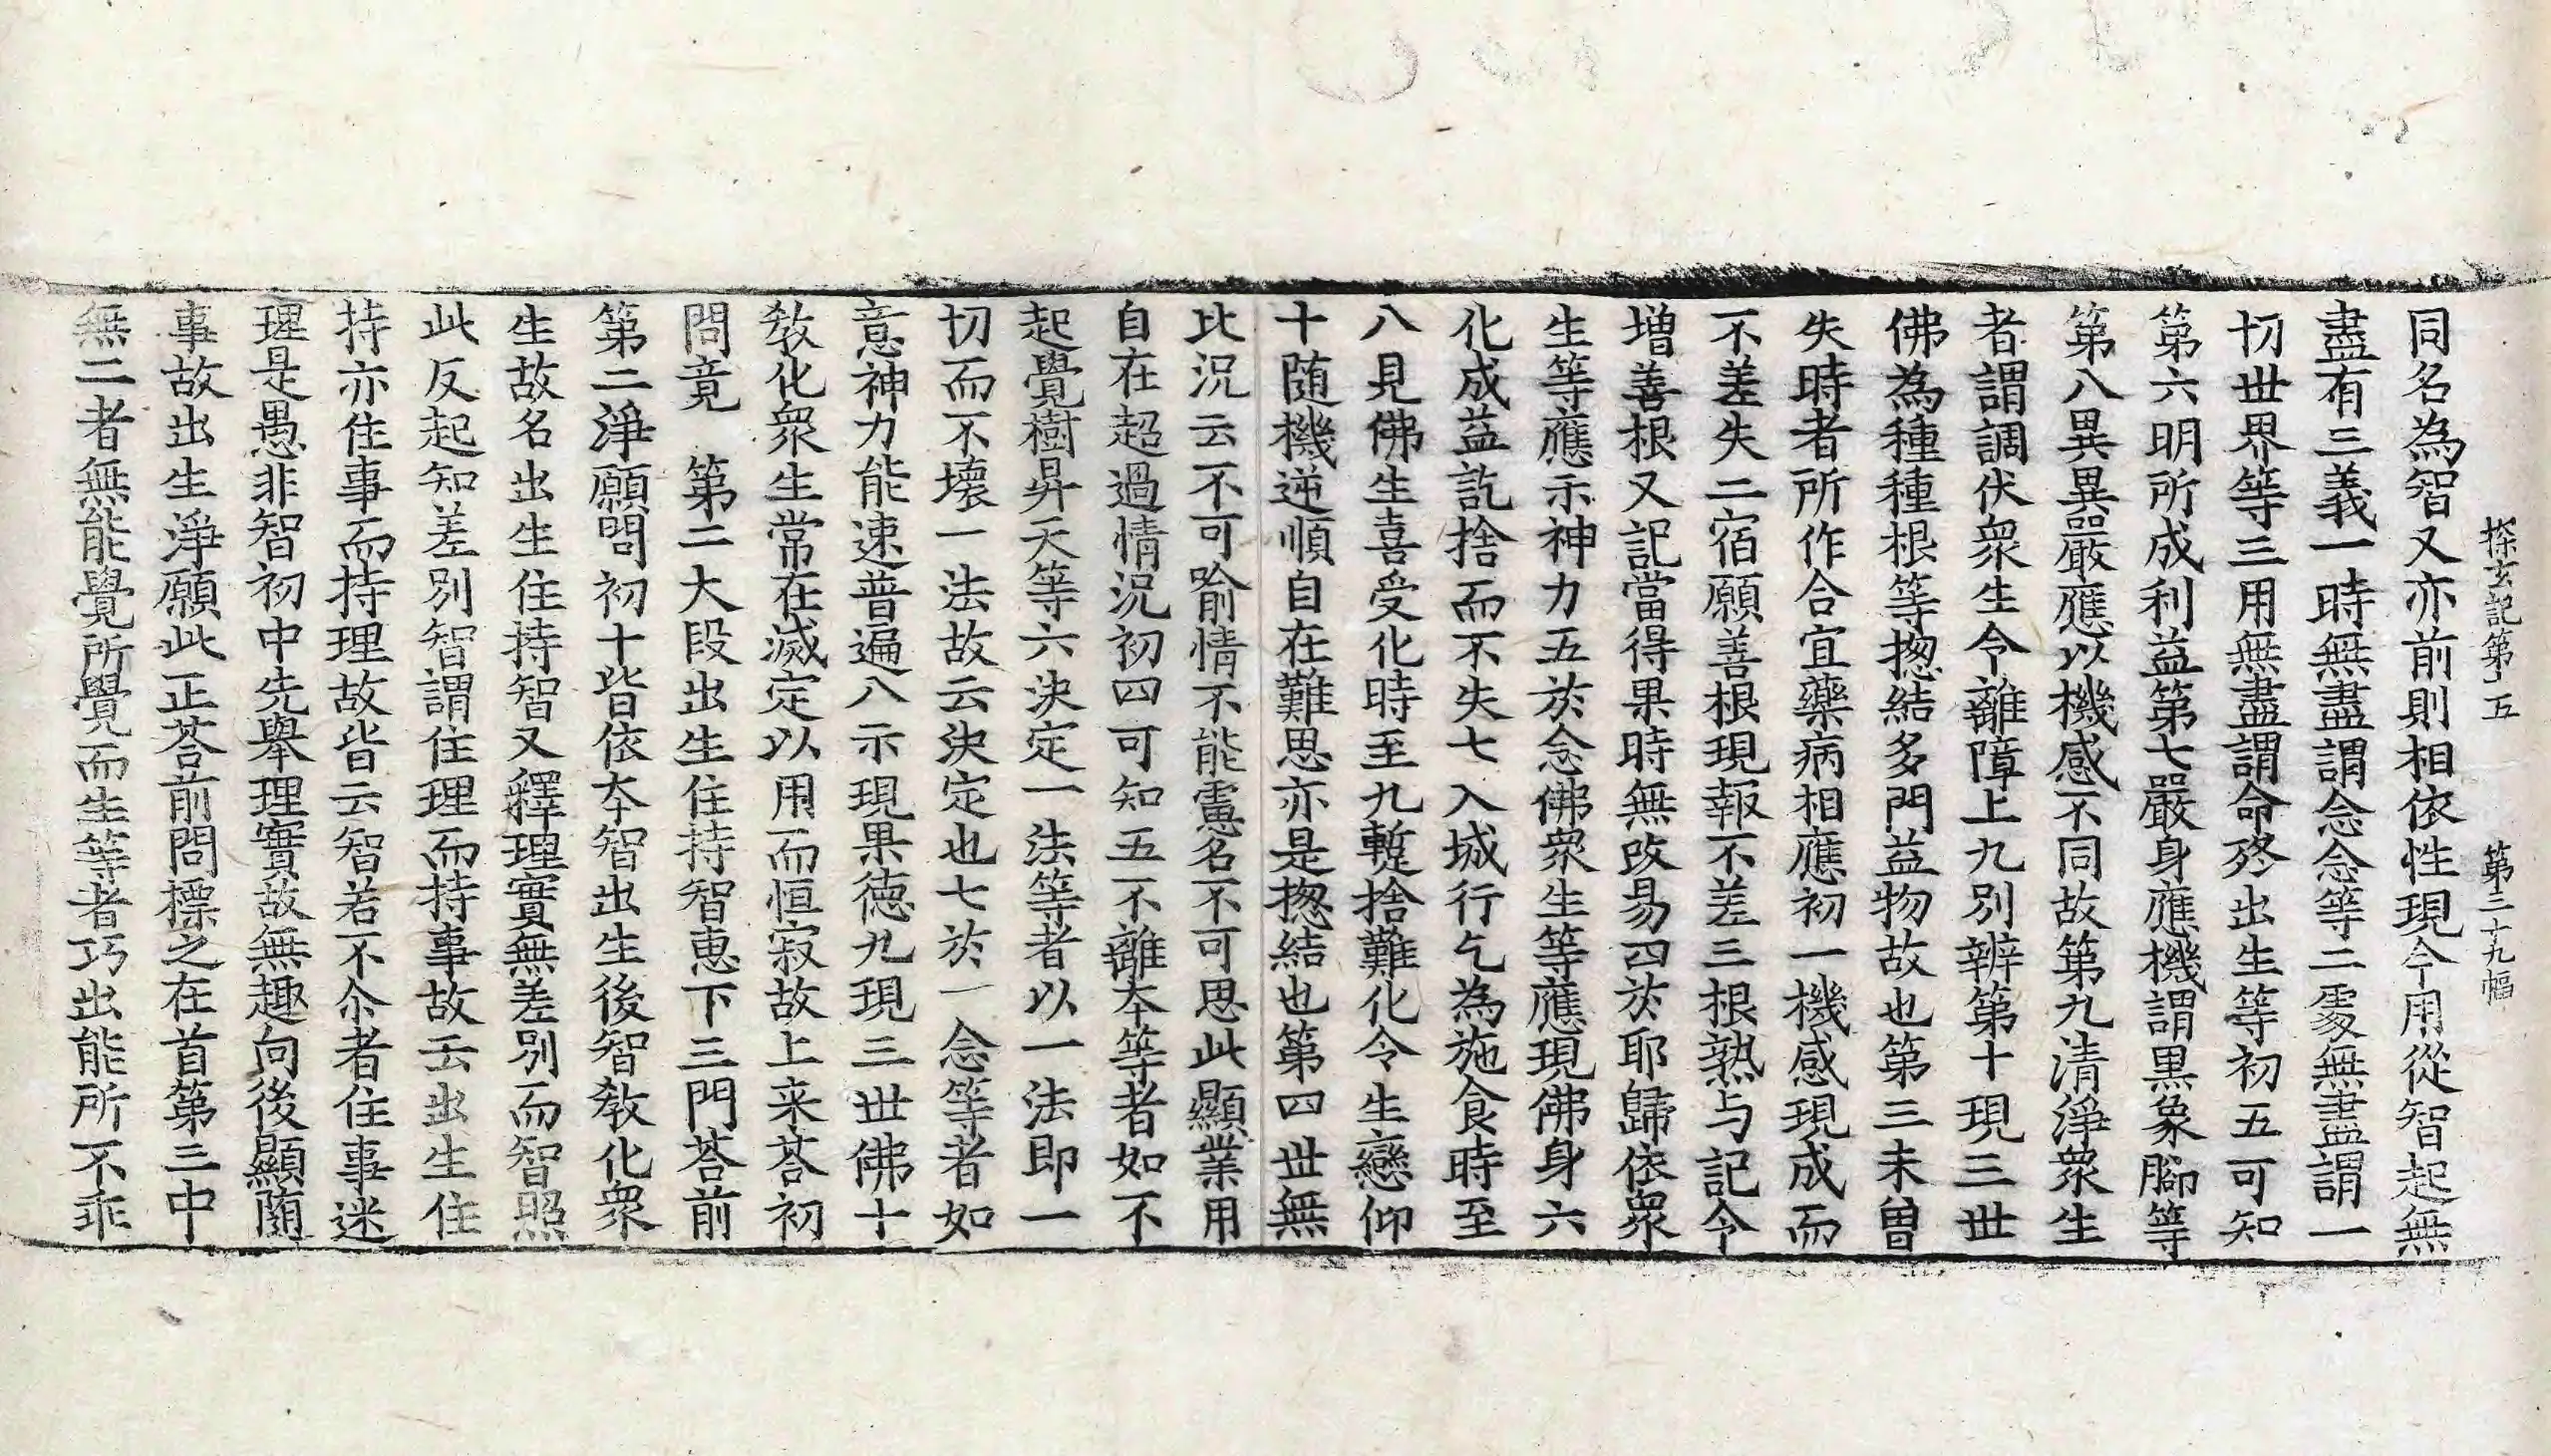 探玄記第十五 第三十九幅
同名為智又亦前則相依性現今用從智起無
盡有三義一時無盡謂念念等二䖏無盡謂一
切世界等三用無盡謂命終出生等初五可知
第六明所成利益第七嚴身應機謂黒象腳等
第八異異嚴應以機感不同故第九清淨衆生
者謂調伏衆生令離障上九別辨第十現三世
佛為種種根等揔結多門益物故也第三未曽
失時者所作合宜藥病相應初一機感現成而
不差失二宿願善根現報不差三根熟与記今
増善根又記當得果時無改易四於耶歸依衆
生等應示神力五於念佛衆生等應現佛身六
化成益訖捨而不失七入城行乞為施食時至
八見佛生喜受化時至九蹔捨難化令生戀仰
十随機逆順自在難思亦是揔結也第四世無
比況云不可喻情不能慮名不可思此顯業用
自在超過情況初四可知五不離夲等者如不
起覺樹昇天等六決定一法等者以一法即一
切而不壞一法故云決定也七於一念等者如
意神力能速普遍八示現果德九現三世佛十
敎化衆生常在滅定以用而恒寂故上来荅初
問竟 第二大段出生住持智惠下三門荅前
第二淨願問初十皆依夲智出生後智敎化衆
生故名出生住持智又釋理實無差別而智照
此反起知差別智謂住理而持事故云出生住
持亦住事而持理故皆云智若不尒者住事迷
理是愚非智初中先舉理實故無趣向後顯随
事故出生淨願此正荅前問標之在首第三中
無二者無能覺所覺而生等者巧出能所不乖